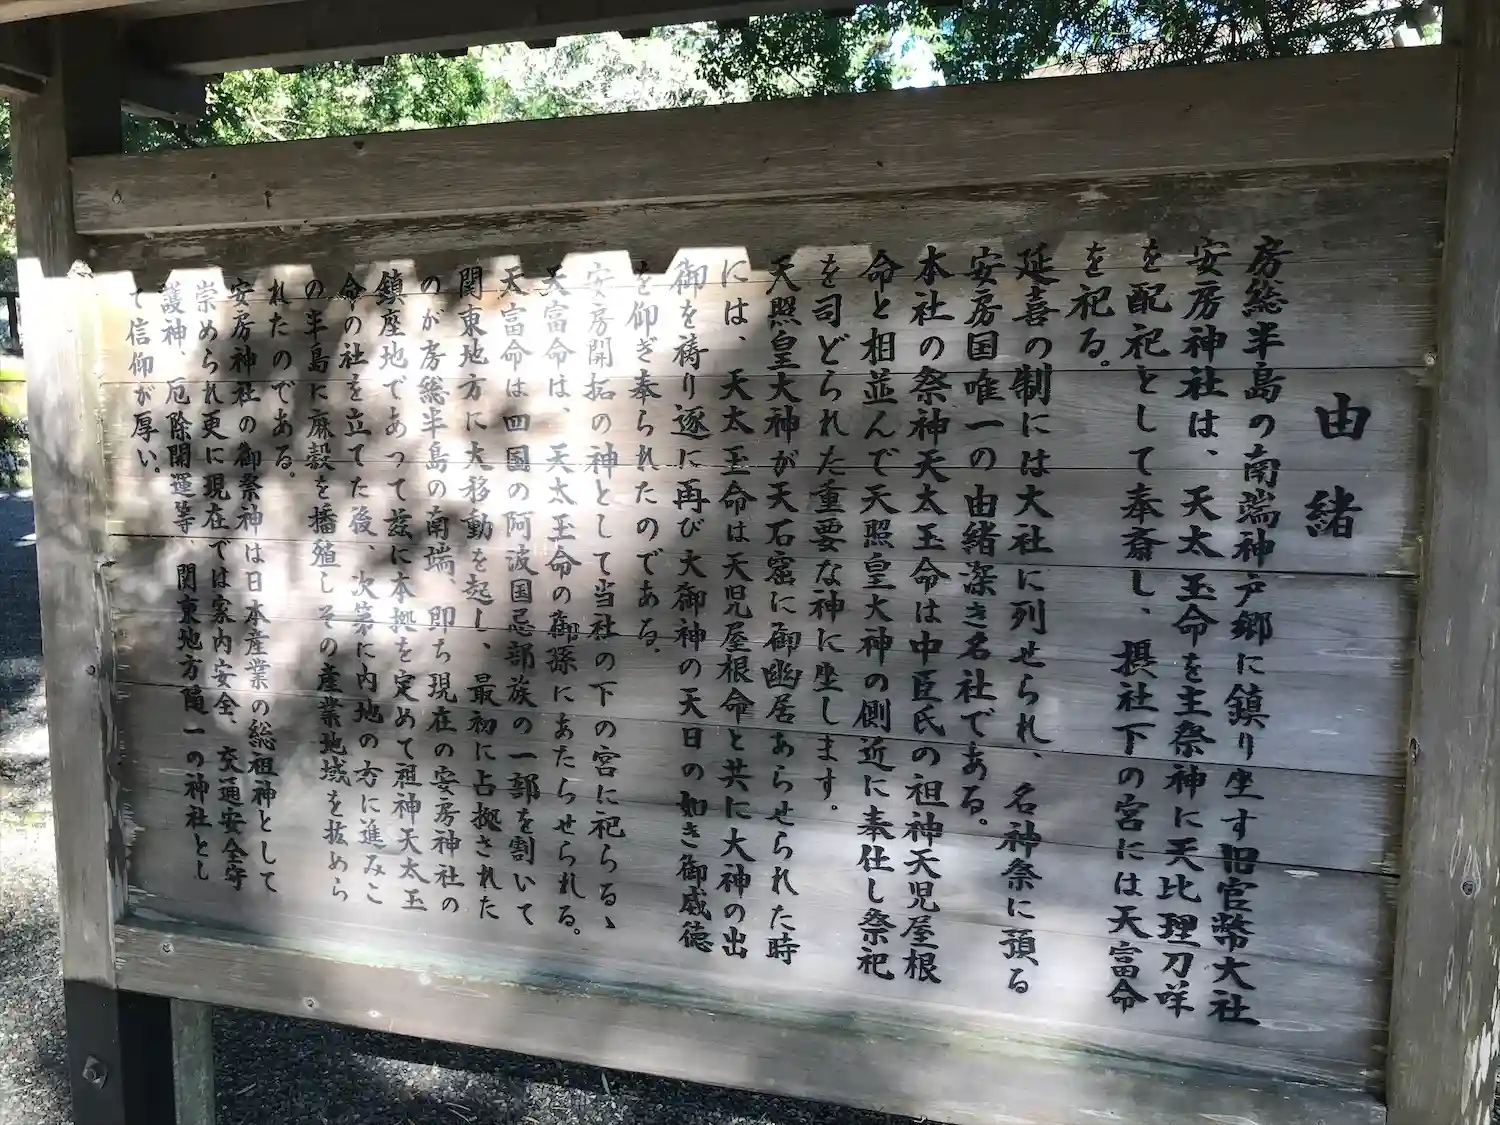 由緒
房総半島の南端神戸郷に鎮り坐す旧官幣大社
安房神社は、天太玉命を主祭神に天比理刀咩
を配祀として奉斎し、摂社下の宮には天富命
を祀る。
延喜の制には大社に列せられ、名神祭に預る
安房国唯一の由緒深き名社である。
本社の祭神天太玉命は中臣氏の祖神天児屋根
命と相並んで天照皇大神の側近に奉仕し祭祀
を司どられた重要な神に坐します。
天照皇大神が天石窟に御幽居あらせられた時
には、天太玉命は天児屋根命と共に大神の出
御を祷り逐に再び大御神の天日の如き御威徳
を仰ぎ奉られたのである。
安房開拓の神として当社の下の宮に祀らる、
天富命は、天太玉命の御孫にあたらせられる。
天富命は四国の阿波国忌部族の一部を割いて
関東地方に大移動を起し、最初に占拠された
のが房総半島の南端、即ち現在の安房神社の
鎮座地であって茲に本拠を定めて祖神天太玉
命の社を立てた後、次第に内地の方に進みこ
の半島に麻穀を播殖しその産業地域を拡めら
れたのである。
安房神社の御祭神は日本産業の総祖神として
崇められ更に現在では家内安全、交通安全守
護神、厄除開運等、関東地方随一の神社とし
て信仰が厚い。